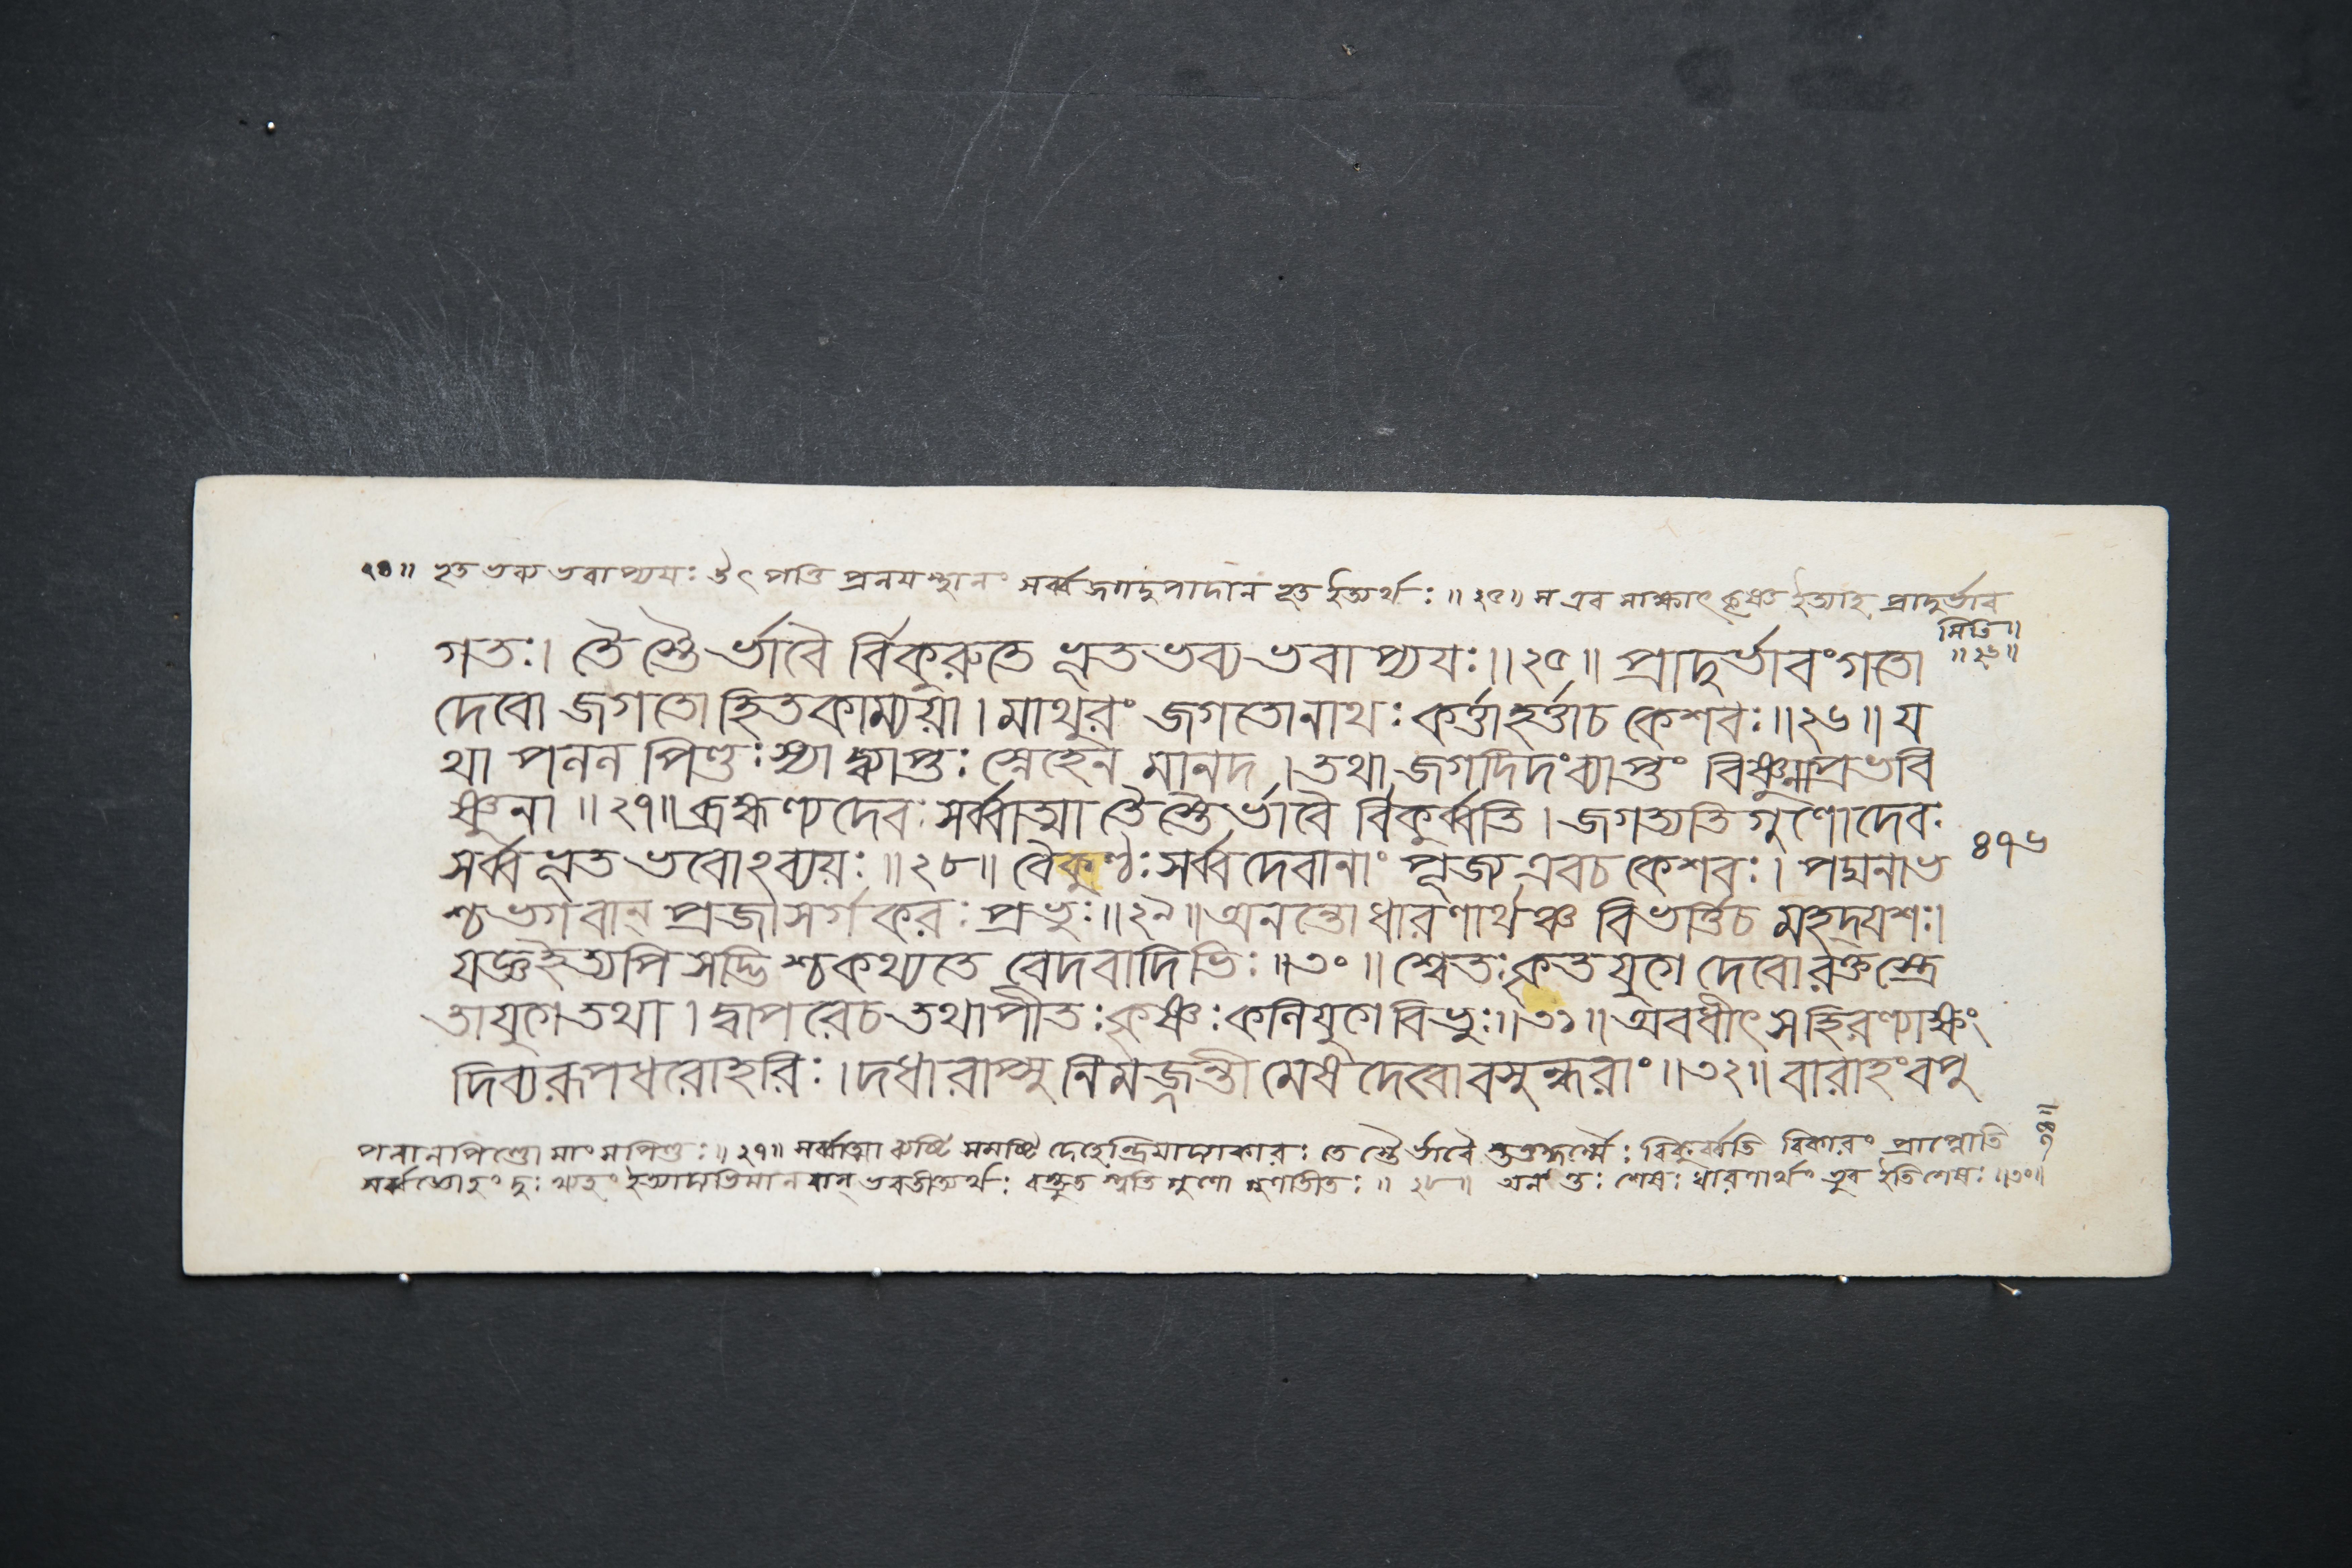 ২৪॥ হৃত ভব্য ভবাপ্যয়ঃ উৎপত্তি প্রলয়স্থানং সর্ব্বজগদুপাদান হৃত ইত্যর্থঃ ॥ ২৫॥ স এব সাক্ষাৎ কৃষ্ণ ইত্যাহ প্রাদুর্ভাব
মিতি॥
॥২৬॥
গতঃ। তৈ স্তৈ র্ভাবৈ র্বিকুরুতে ভূতভব্যভবাপ্যযঃ॥২৫॥ প্রাদুর্ভাবংগতো
দেবো জগতো হিতকাম্যয়া। মাথুরং জগতোনাথঃ কর্ত্তাহর্ত্তাচ কেশবঃ॥২৬॥ য
থা পলল পিণ্ডঃ স্যা দ্ব্যাপ্তঃ স্নেহেন মানদ। তথা জগদিদংব্যাপ্তং বিষ্ণুনাপ্রভবি
ষ্ণুনা॥২৭॥ব্রহ্মণ্যদেবঃ সর্ব্বাত্মা তৈস্তৈর্ভাবৈ র্বিকুর্ব্বতি। জগত্যতিগুণোদেবঃ
সর্ব্বভূত ভবোঽব্যয়ঃ॥২৮॥ বৈকুণ্ঠঃ সর্ব্বদেবানাং পূজ্য এবচ কেশবঃ। পদ্মনাভ
৪৭৬
শ্চ ভগবান্ প্রজাসর্গকরঃ প্রভুঃ॥২৯॥অনন্তোধারণার্থঞ্চ বিভর্ত্তিচ মহদ্যশঃ।
যজ্ঞইত্যপি সদ্ভি শ্চকথ্যতে বেদবাদিভিঃ॥৩০॥ শ্বেতঃকৃতযুগে দেবোরক্তস্ত্রে
তাযুগেতথা। দ্বাপরেচতথাপীতঃকৃষ্ণঃকলিযুগেবিভুঃ॥৩১॥অবধীৎ সহিরণ্যাক্ষং
দিব্যরূপধরোহরিঃ।দধারাপ্সু নিমজ্জন্তীমেষ দেবোবসুন্ধরাং॥৩২॥বারাহংবপু
পললপিণ্ডো মাংসপিণ্ডঃ॥২৭॥ সর্ব্বাত্মা ব্যষ্টি সমষ্টি দেহেন্দ্রিয়াদ্যাকারঃ তৈ স্তৈর্ভাবৈ স্তত্তদ্ধর্ম্মৈঃ বিকুর্ব্বতি বিকারং প্রাপ্নোতি
দুঃখ্যহং ইত্যাদ্যভিমানবান্ ভবতীত্যর্থঃ বস্তুতস্ত্বতিগুণো গুণাতীতঃ॥২৮॥ অনন্তঃ শেষঃ ধারণার্থং ভুব ইতিশেষঃ॥৩০॥